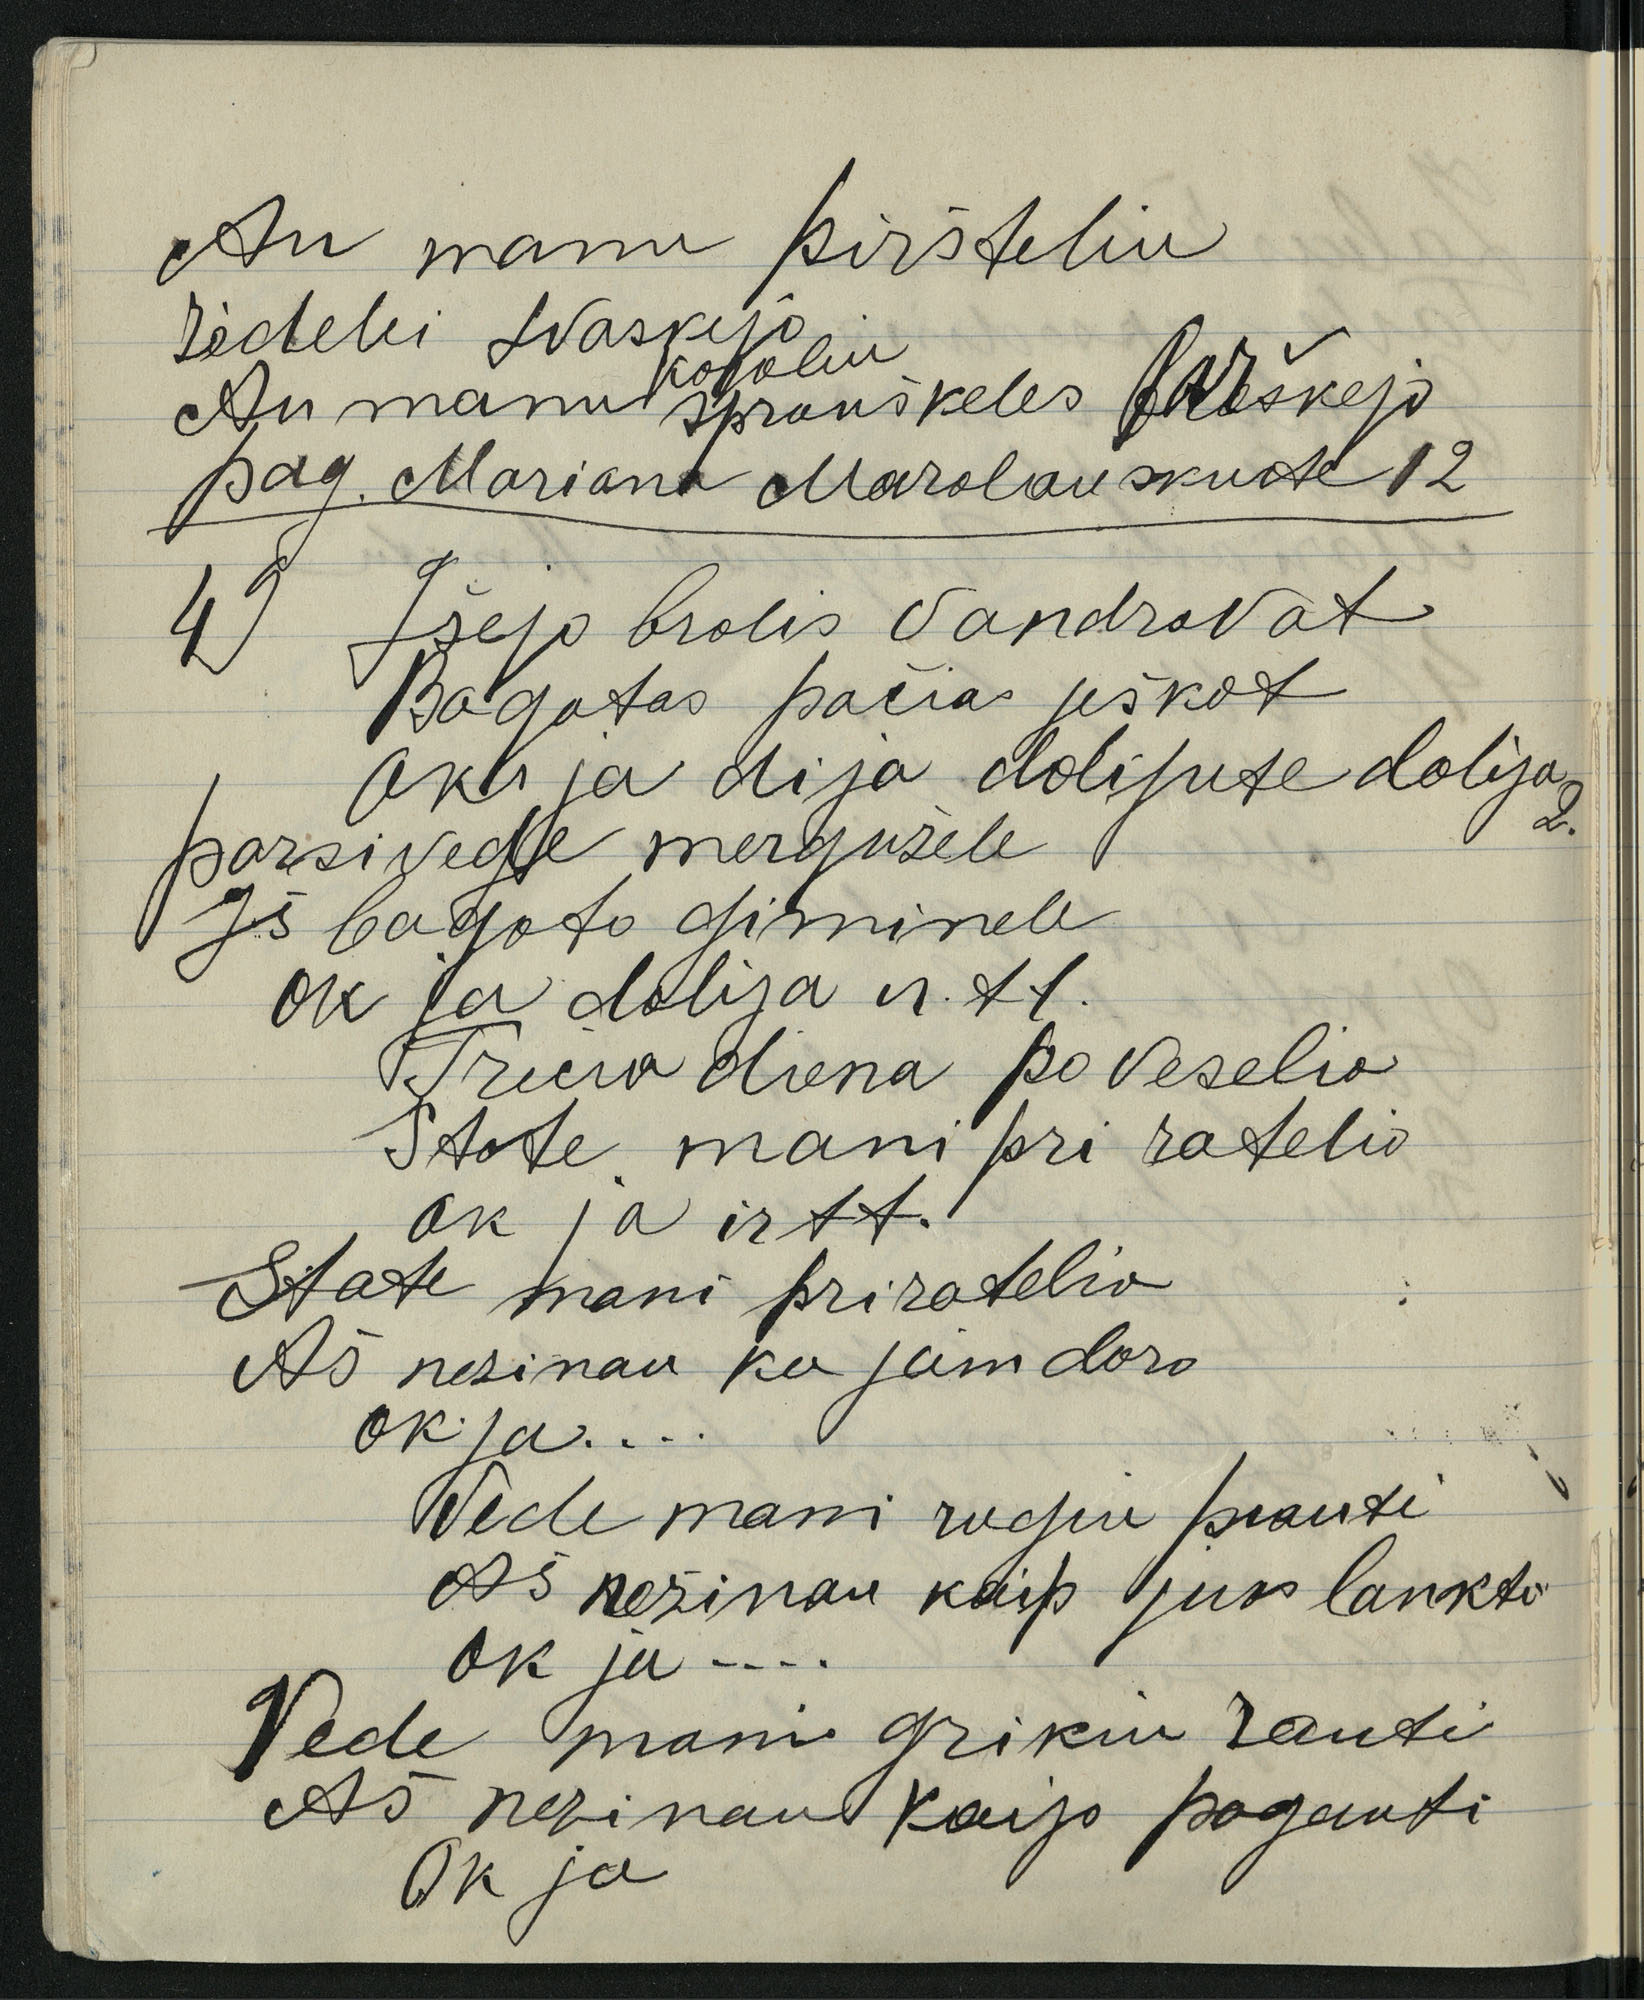 An manu piršteliu
žiedelei žvaskėjo
An manu kojoliu sprouškeles barškejo
pag. Mariana Marolauskuote 12
4) Išejo brolis vandravat
Bagotas pačias ješkot
Ok ja dija dolijute dolija 2.
parsivede mergužele
Iš bagoto giminele
ok ja dolija ir. tt.
Trečia diena po veselio
State mani pri ratelio
ok ja ir tt.
State mani pri ratelio
Aš nežinau ku jam daro
ok ja....
Vede mani rugiu piauti
Aš nežinau kaip juos lankto
ok ja ----
Vede mani grikiu rauti
Aš nežinau kaip pagauti
Ok ja